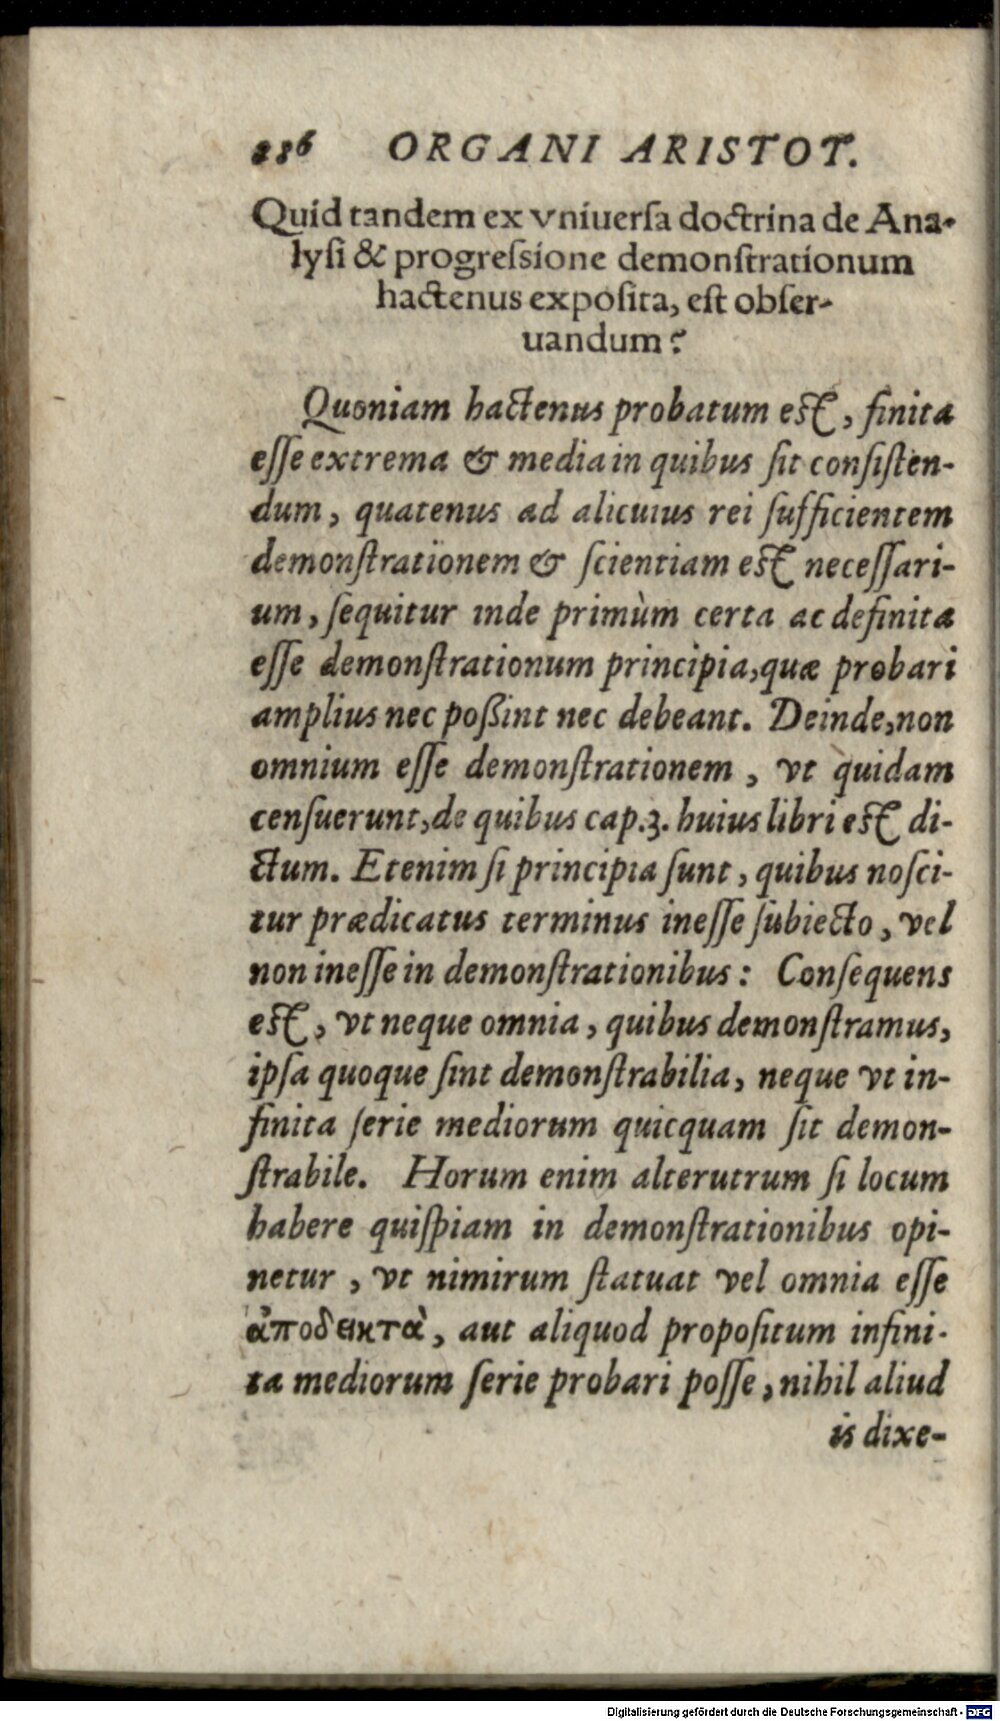 286 ORGANI ARISTOT.
Quid tandem ex vniuerſa doctrina de Ana-
lyſi & progreſsione demonſtrationum
hactenus expoſita, eſt obſer-
uandum?
Quoniam hactenus probatum eſt, finita
eſſe extrema & media in quibus ſit conſiſten-
dum, quatenus ad alicuius rei ſufficientem
demonſtrationem & ſcientiam eſt neceſſari-
um, ſequitur inde primùm certa ac definita
eſſe demonſtrationum principia, quæ probari
amplius nec poßint nec debeant. Deinde, non
omnium eſſe demonſtrationem, vt quidam
cenſuerunt, de quibus cap. 3. huius libri eſt di-
ctum. Etenim ſi principia ſunt, quibus noſci-
tur prædicatus terminus ineſſe ſubiecto, vel
non ineſſe in demonſtrationibus: Conſequens
eſt, vt neque omnia, quibus demonſtramus,
ipſa quoque ſint demonſtrabilia, neque vt in-
finita ſerie mediorum quicquam ſit demon-
ſtrabile. Horum enim alterutrum ſi locum
habere quiſpiam in demonſtrationibus opi-
netur, vt nimirum ſtatuat vel omnia eſſe
ἀποδεικτὰ, aut aliquod propoſitum infini-
ta mediorum ſerie probari poſſe, nihil aliud
is dixe-
Digitalisierung gefördert durch die Deutsche Forschungsgemeinschaft - DFG